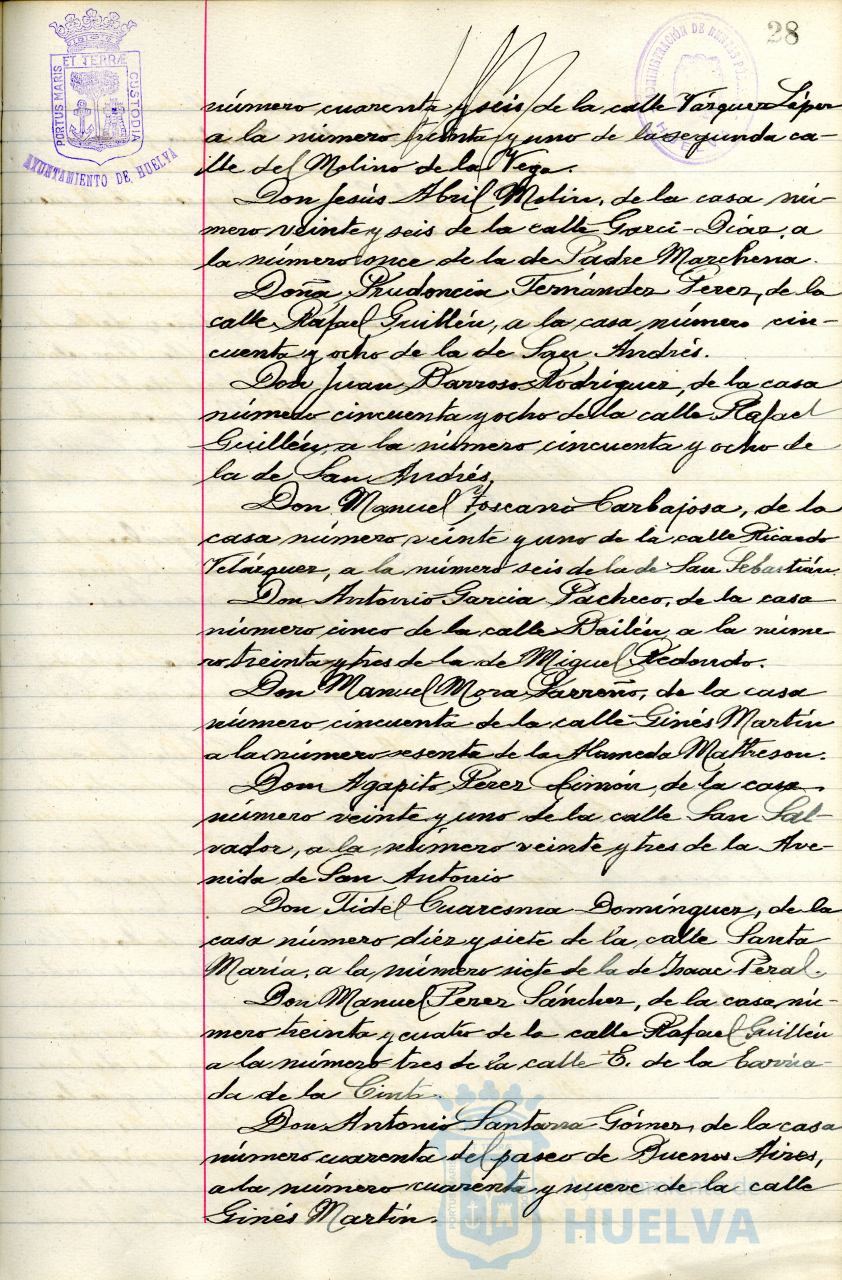 28
PORTUS MARIS ET TERRÆ CUSTODIA
AYUNTAMIENTO DE HUELVA
ADMINISTRACIÓN DE RENTAS
número cuarenta y séis, de la calle Vázquez López
a la número treinta y uno de la segunda ca-
lle del Molino de la Vega.
Don Jesús Abril Molin, de la casa nú-
mero veinte y seis de la calle Garci-Díaz, a
la número once de la de Padre Marchena.
Doña Prudencia Fernández Perez, de la
calle Rafael Guillén, a la casa número cin-
cuenta y ocho de la de San Andrés.
Don Juan Barroso Rodriguez, de la casa
número cincuenta y ocho de la calle Rafael
Guillén, a la número cincuenta y ocho de
la de San Andrés.
Don Manuel Toscano Carbajosa, de la
casa número veinte y uno de la calle Ricardo
Velázquez, a la número seis de la de San Sebastián.
Don Antonio Garcia Pacheco, de la casa
número cinco de la calle Bailén, a la núme-
ro treinta y tres de la de Miguel Redondo.
Don Manuel Mora Parreño, de la casa
número cincuenta de la calle Ginés Martín
a la número sesenta de la Alameda Matheson.
Don Agapito Perez Limón, de la casa
número veinte y uno de la calle San Sal-
vador, a la número veinte y tres de la Ave-
nida de San Antonio
Don Fidel Cuaresma Domínguez, de la
casa número diéz y siete de la calle Santa
María, a la número siete de la de Isaac Peral.
Don Manuel Perez Sánchez, de la casa nú-
mero treinta y cuatro de la calle Rafael Guillén
a la número tres de la calle E. de la Barria-
da de la Cinta.
Don Antonio Santana Gómez, de la casa
número cuarenta del paseo de Buenos Aires,
a la número cuarenta y nueve de la calle
Ginés Martín.
Ayuntamiento de
HUELVA